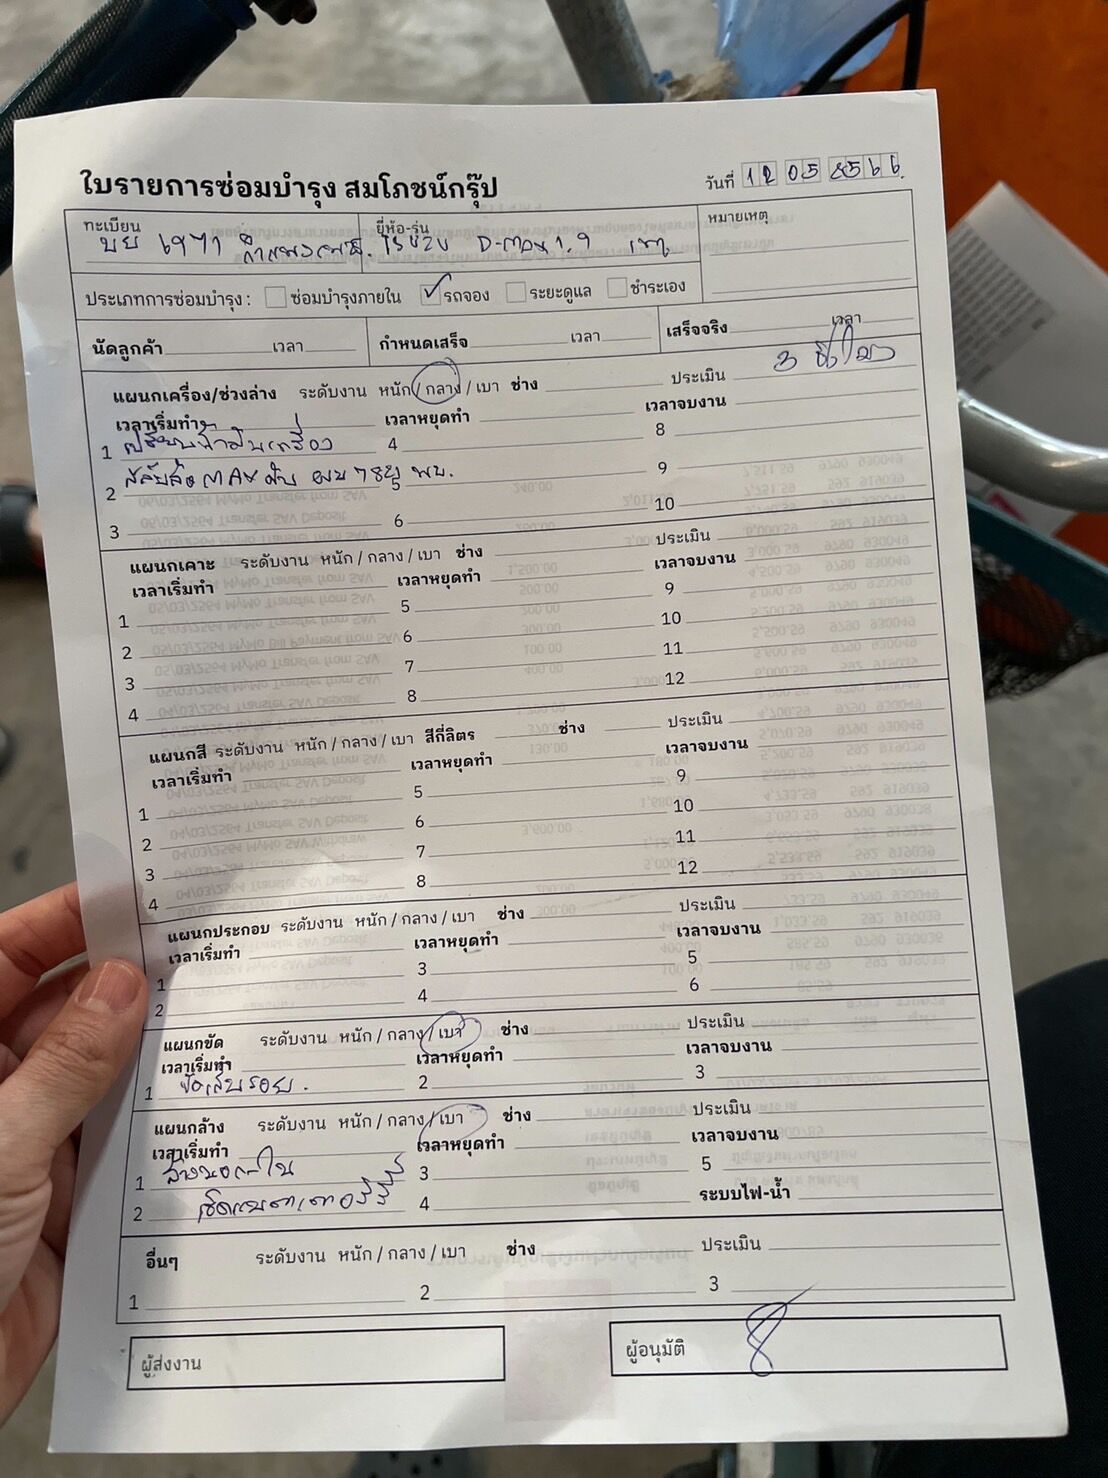 ใบรายการซ่อมบำรุง สมโภชน์กรุ๊ป
วันที่ 12 05 2566
ทะเบียน ยี่ห้อ-รุ่น หมายเหตุ
บย กำแพงเพชร. ISUZU D-max 1.9 เทา
ประเภทการซ่อมบำรุง : ซ่อมบำรุงภายใน ✓ รถจอง ระยะดูแล ชำระเอง
นัดลูกค้า เวลา กำหนดเสร็จ เวลา เสร็จจริง เวลา
แผนกเครื่อง/ช่วงล่าง ระดับงาน หนัก / กลาง / เบา ช่าง ประเมิน 3
เวลาเริ่มทำ เวลาหยุดทำ เวลาจบงาน
1 เปลี่ยนน้ำมันเครื่อง 4 8
2 5 9
3 6 10
แผนกเคาะ ระดับงาน หนัก / กลาง / เบา ช่าง ประเมิน
เวลาเริ่มทำ เวลาหยุดทำ เวลาจบงาน
1 5 9
2 6 10
3 7 11
4 8 12
แผนกสี ระดับงาน หนัก / กลาง / เบา สีกี่ลิตร ช่าง ประเมิน
เวลาเริ่มทำ เวลาหยุดทำ เวลาจบงาน
1 5 9
2 6 10
3 7 11
4 8 12
แผนกประกอบ ระดับงาน หนัก / กลาง / เบา ช่าง ประเมิน
เวลาเริ่มทำ เวลาหยุดทำ เวลาจบงาน
1 3 5
2 4 6
แผนกขัด ระดับงาน หนัก / กลาง / เบา ช่าง ประเมิน
เวลาเริ่มทำ เวลาหยุดทำ เวลาจบงาน
1 ขัดเส้นรอย. 2 3
แผนกล้าง ระดับงาน หนัก / กลาง / เบา ช่าง ประเมิน
เวลาเริ่มทำ เวลาหยุดทำ เวลาจบงาน
1 ล้างนอก-ใน 3 5
2 เช็คแบตเตอรี่ 4 ระบบไฟ-น้ำ
อื่นๆ ระดับงาน หนัก / กลาง / เบา ช่าง ประเมิน
1 2 3
ผู้ส่งงาน ผู้อนุมัติ